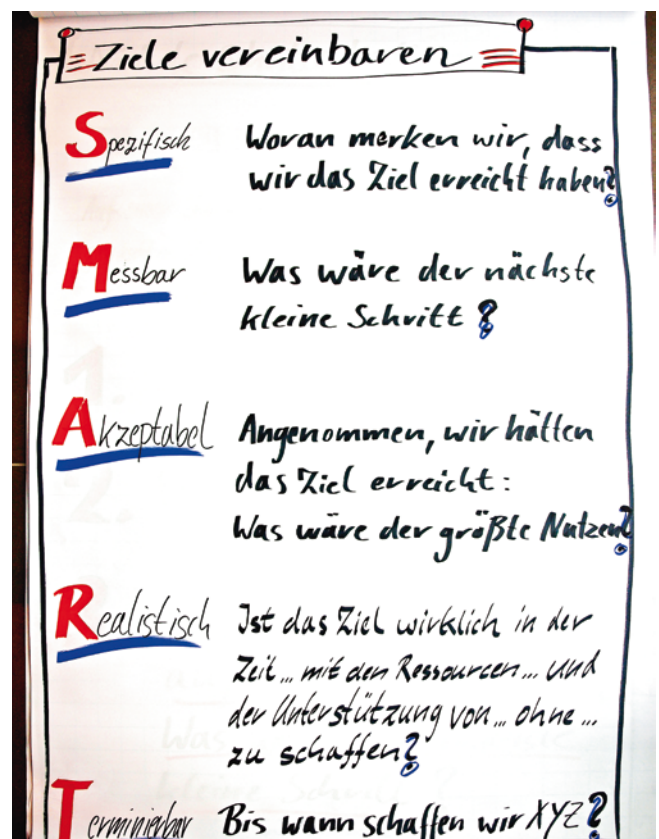 Ziele vereinbaren
Spezifisch Woran merken wir, dass
wir das Ziel erreicht haben?
Messbar Was wäre der nächste
kleine Schritt?
Akzeptabel Angenommen, wir hätten
das Ziel erreicht:
Was wäre der größte Nutzen?
Realistisch Ist das Ziel wirklich in der
Zeit... mit den Ressourcen... und
der Unterstützung von... ohne...
zu schaffen?
Terminierbar Bis wann schaffen wir XYZ?